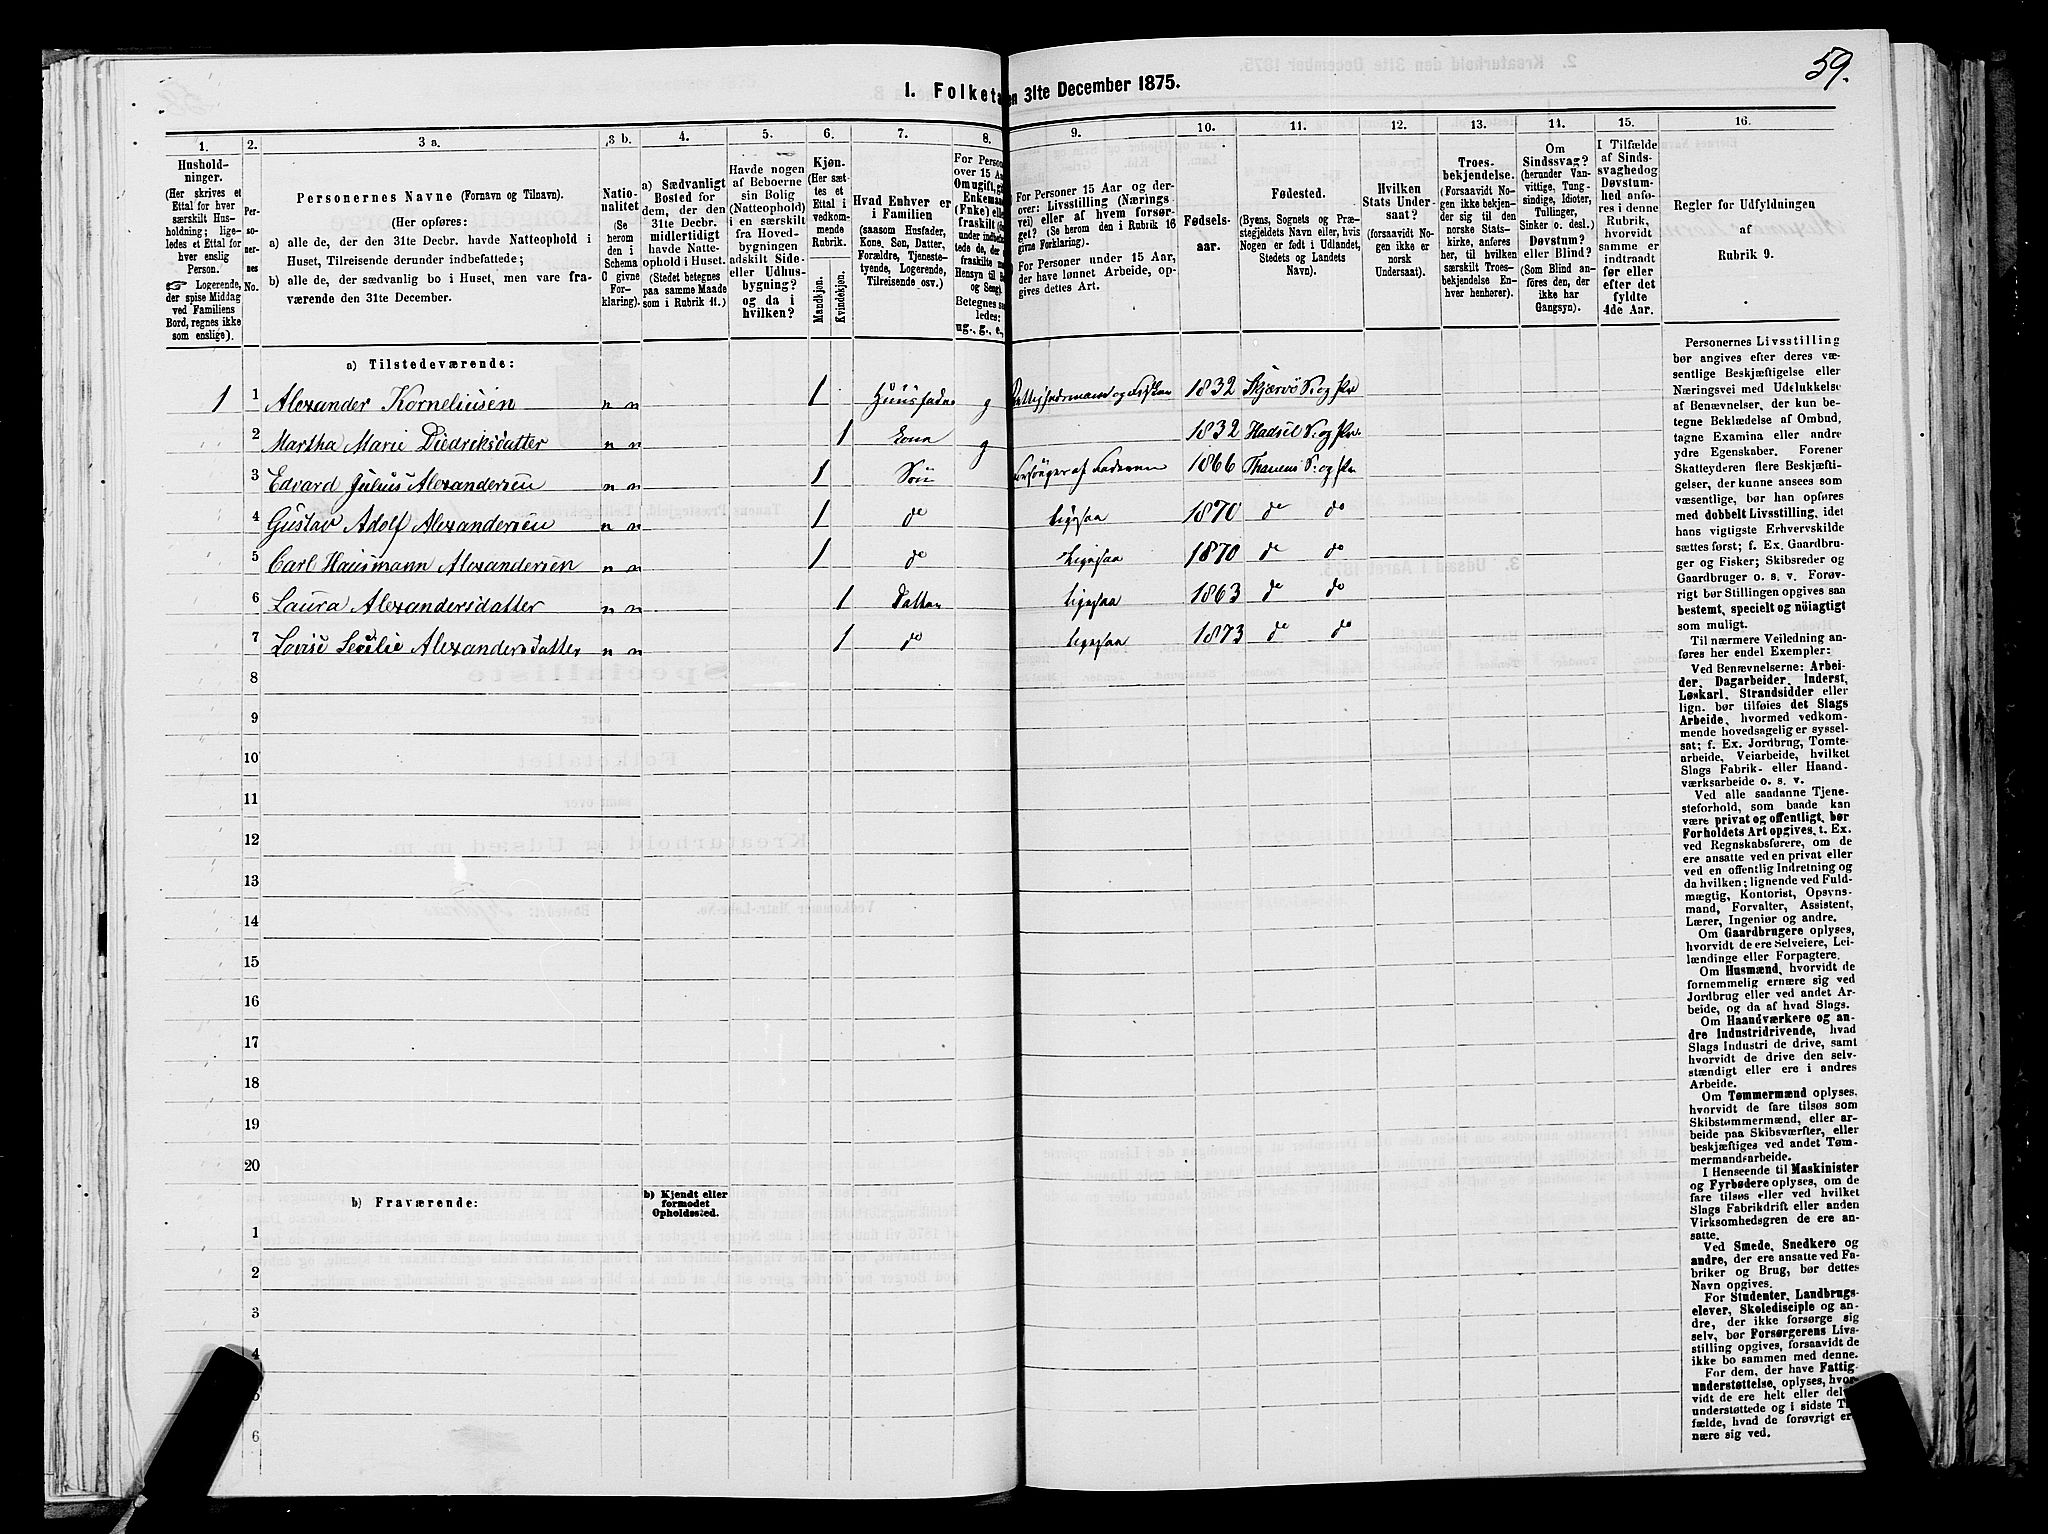 59.
I. Folketa en 31te December 1875.
1. 2. 3 a. 3 b. 4. 5. 6. 7. 8. 9. 10. 11. 12. 13. 14. 15. 16.
Hushold-
ninger.
(Her skrives et
Ettal for hver
særskilt Hus-
holdning; lige-
ledes et Ettal for
hver enslig
Person.
Logerende,
der spise Middag
ved Familiens
Bord, regnes ikke
som enslige).
Per-
so-
ner-
nes
No.
Personernes Navne (Fornavn og Tilnavn).
(Her opføres:
a) alle de, der den 31te Decbr. havde Natteophold i
Huset, Tilreisende derunder indbefattede;
b) alle de, der sædvanlig bo i Huset, men vare fra-
værende den 31te December.
Natio-
nalitet
(Se
herom
den i
Schema
O givne
For-
klaring).
a) Sædvanligt
Bosted for
dem, der den
31te Decbr.
midlertidigt
havde Natte-
ophold i Huset.
(Stedet betegnes
paa samme Maade
som i Rubrik 11.)
Havde nogen
af Beboerne
sin Bolig
(Natteophold)
i en særskilt
fra Hoved-
bygningen
adskilt Side-
eller Udhus-
bygning?
og da i
hvilken?
Kjøn.
(Her sæt-
tes et
Ettal i
vedkom-
mende
Rubrik.
Mandkjøn.
Kvindekjøn.
Hvad Enhver er
i Familien
(saasom Husfader,
Kone, Søn, Datter,
Forældre, Tjeneste-
tyende, Logerende,
Tilreisende osv.)
For Person
over 15 Aa
Omugift, gi
Enkeman
(Fnke) elle
fraskilt (d
under indbef
tede de, de
fraskilte m
Hensyn til B
og Seng).
Betegnes sa
ledes:
ug., g., e.,
For Personer 15 Aar og der-
over: Livsstilling (Nærings-
vei) eller af hvem forsør-
get? (Se herom den i Rubrik 16
givne Forklaring).
For Personer under 15 Aar,
der have lønnet Arbeide, op-
gives dettes Art.
Fødsels-
aar.
Fødested.
(Byens, Sognets og Præ-
stegjeldets Navn eller, hvis
Nogen er født i Udlandet,
Stedets og Landets
Navn).
Hvilken
Stats Under-
saat?
(forsaavidt No-
gen ikke er
norsk
Undersaat).
Troes-
bekjendelse.
(Forsaavidt No-
gen ikke bekjen-
der sig til den
norske Stats-
kirke, anføres
her, til hvilken
særskilt Troes-
bekjendelse En-
hver henhører).
Om
Sindssvag?
(herunder Van-
vittige, Tung-
sindige, Idioter,
Tullinger,
Sinker o. desl.)
Døvstum?
eller Blind?
(Som Blind an-
føres den, der
ikke har
Gangsyn).
I Tilfælde
af Sinds-
svaghedog
Døvstum-
hed anfø-
res i denne
Rubrik,
hvorvidt
samme er
indtraadt
før eller
efter det
fyldte
4de Aar.
Regler for Udfyldningen
af
Rubrik 9.
a) Tilstedeværende:
1 1 Alexander Korneliusen n n 1 Huusfader g 1832 Skjervö S. og Pr
2 Martha Marie Diedriksdatter n n 1 Kona g 1832 Hadsel S. og Pr.
3 Edvard Julius Alexandersen n n 1 Sön Forsörges af Faderen 1866 Thanens S. og Pr
4 Gustav Adolf Alexandersen n n 1 do ligesaa 1870 do do
5 Carl Hausmann Alexandersen n n 1 do ligesaa 1870 do do
6 Laura Alexandersdatter n n 1 Datter ligesaa 1863 do do
7 Lovise Secilie Alexandersdatter n n 1 do ligesaa 1873 do do
8
9
10
11
12
13
14
15
16
17
18
19
20
b) Fraværende:
b) Kjendt eller
formodet
Opholdssted.
1
2
3
4
5
6
Personernes Livsstilling
bør angives efter deres væ-
sentlige Beskjæftigelse eller
Næringsvei med Udelukkelse
af Benævnelser, der kun be-
tegne Beklædelse af Ombud,
tagne Examina eller andre
ydre Egenskaber. Forener
Skatteyderen flere Beskjæfti-
gelser, der kunne ansees som
væsentlige, bør han opføres
med dobbelt Livsstilling, idet
hans vigtigste Erhvervskilde
sættes først; f. Ex. Gaardbru-
ger og Fisker; Skibsreder og
Gaardbruger o. s. v. Forøv-
rigt bør Stillingen opgives saa
bestemt, specielt og nöiagtigt
som muligt.
Til nærmere Veiledning an-
føres her endel Exempler:
Ved Benævnelserne: Arbei-
der, Dagarbeider, Inderst,
Løskarl, Strandsidder eller
lign. bør tilføies det Slags
Arbeide, hvormed vedkom-
mende hovedsagelig er syssel-
sat; f. Ex. Jordbrug, Tomte-
arbeide, Veiarbeide, hvilket
Slags Fabrik- eller Haand-
værksarbeide o. s. v.
Ved alle saadanne Tjene-
steforhold, som baade kan
være privat og offentligt, bør
Forholdets Art opgives, t. Ex.
ved Regnskabsførere, om de
ere ansatte ved en privat eller
ved en offentlig Indretning og
da hvilken; lignende ved Fuld-
mægtig, Kontorist, Opsyns-
mand, Forvalter, Assistent,
Lærer, Ingeniør og andre.
Om Gaardbrugere oplyses,
hvorvidt de ere Selveiere, Lei-
lændinge eller Forpagtere.
Om Husmænd, hvorvidt de
fornemmelig ernære sig ved
Jordbrug eller ved andet Ar-
beide, og da af hvad Slags.
Om Haandværkere og an-
dre Industridrivende, hvad
Slags Industri de drive, samt
hvorvidt de drive den selv-
stændigt eller ere i andres
Arbeide.
Om Tømmermænd oplyses,
hvorvidt de fare tilsøs som
Skibstømmermænd, eller ar-
beide paa Skibsværfter, eller
beskjæftiges ved andet Tøm-
mermandsarbeide.
I Henseende til Maskinister
og Fyrbødere oplyses, om de
fare tilsøs eller ved hvilket
Slags Fabrikdrift eller anden
Virksomhedsgren de ere an-
satte.
Ved Smede, Snedkere og
andre, der ere ansatte ved Fa-
briker og Brug, bør dettes
Navn opgives.
For Studenter, Landbrugs-
elever, Skoledisciple og an-
dre, der ikke forsørge sig
selv, bør Forsørgerens Livs-
stilling opgives, forsaavidt de
ikke bo sammen med denne.
For dem, der have Fattig-
understøttelse, oplyses, hvor-
vidt de ere helt eller del
understøttede og i sidste T
fælde, hvad de forøvrigt er
nære sig ved.